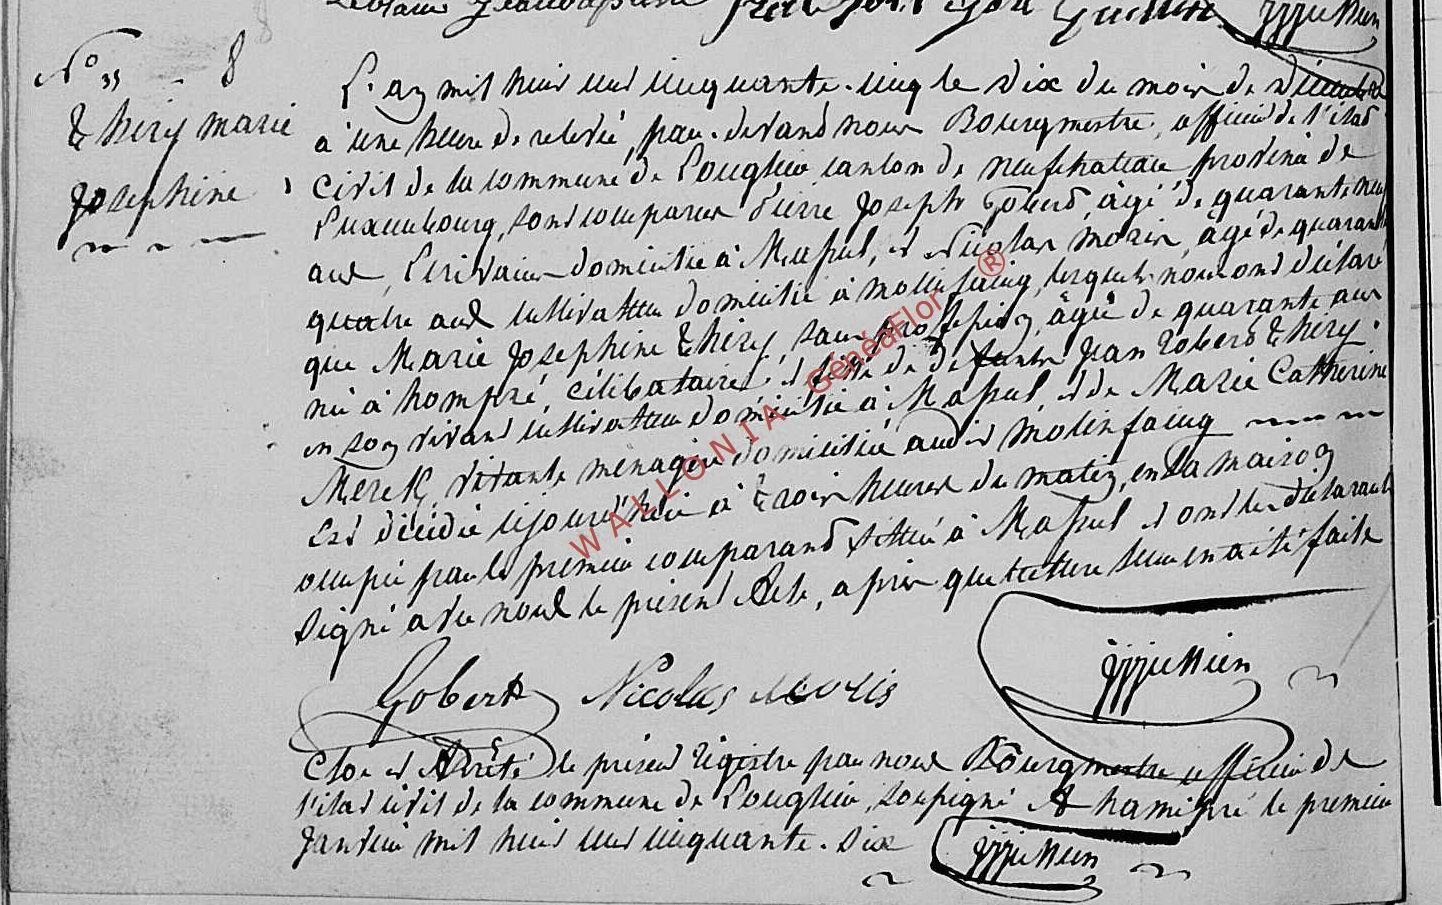 N° 35 - 8
Thiry marie
Josephine
L'an mil huit cent cinquante-cinq le dix du mois de décembre
à une heure de relevée, par-devant nous Bourgmestre, officier de l'état
civil de la commune de Longlier canton de neufchateau province de
Luxembourg, sont comparus Pierre Joseph Gobert, âgé de quarante neuf
ans, Ecrivain domicilié à Massul, et Nicolas moris, âgé de quarante
quatre ans cultivateur domicilié à molinfaing, lesquels nous ont déclaré
que Marie Josephine Thiry, sans profession, âgée de quarante ans
née à hompré, célibataire, et fille de défunt Jean Robert Thiry
en son vivant cultivateur domicilié à Massul et de Marie Catherine
Merck, vivante ménagère domiciliée audit molinfaing
Est décédée cejourd'hui à trois heures du matin, en la maison
occupée par le premier comparant située à Massul et ont les déclarants
signé avec nous le présent Acte, après que lecture leur en a été faite
Gobert Nicolas Moris
Clos et Arrêté le présent régistre par nous Bourgmestre officier de
l'état civil de la commune de Longlier, soussigné A hamipré le premier
Janvier mil huit cent cinquante-six
WALLONIA GénéaFlor ®